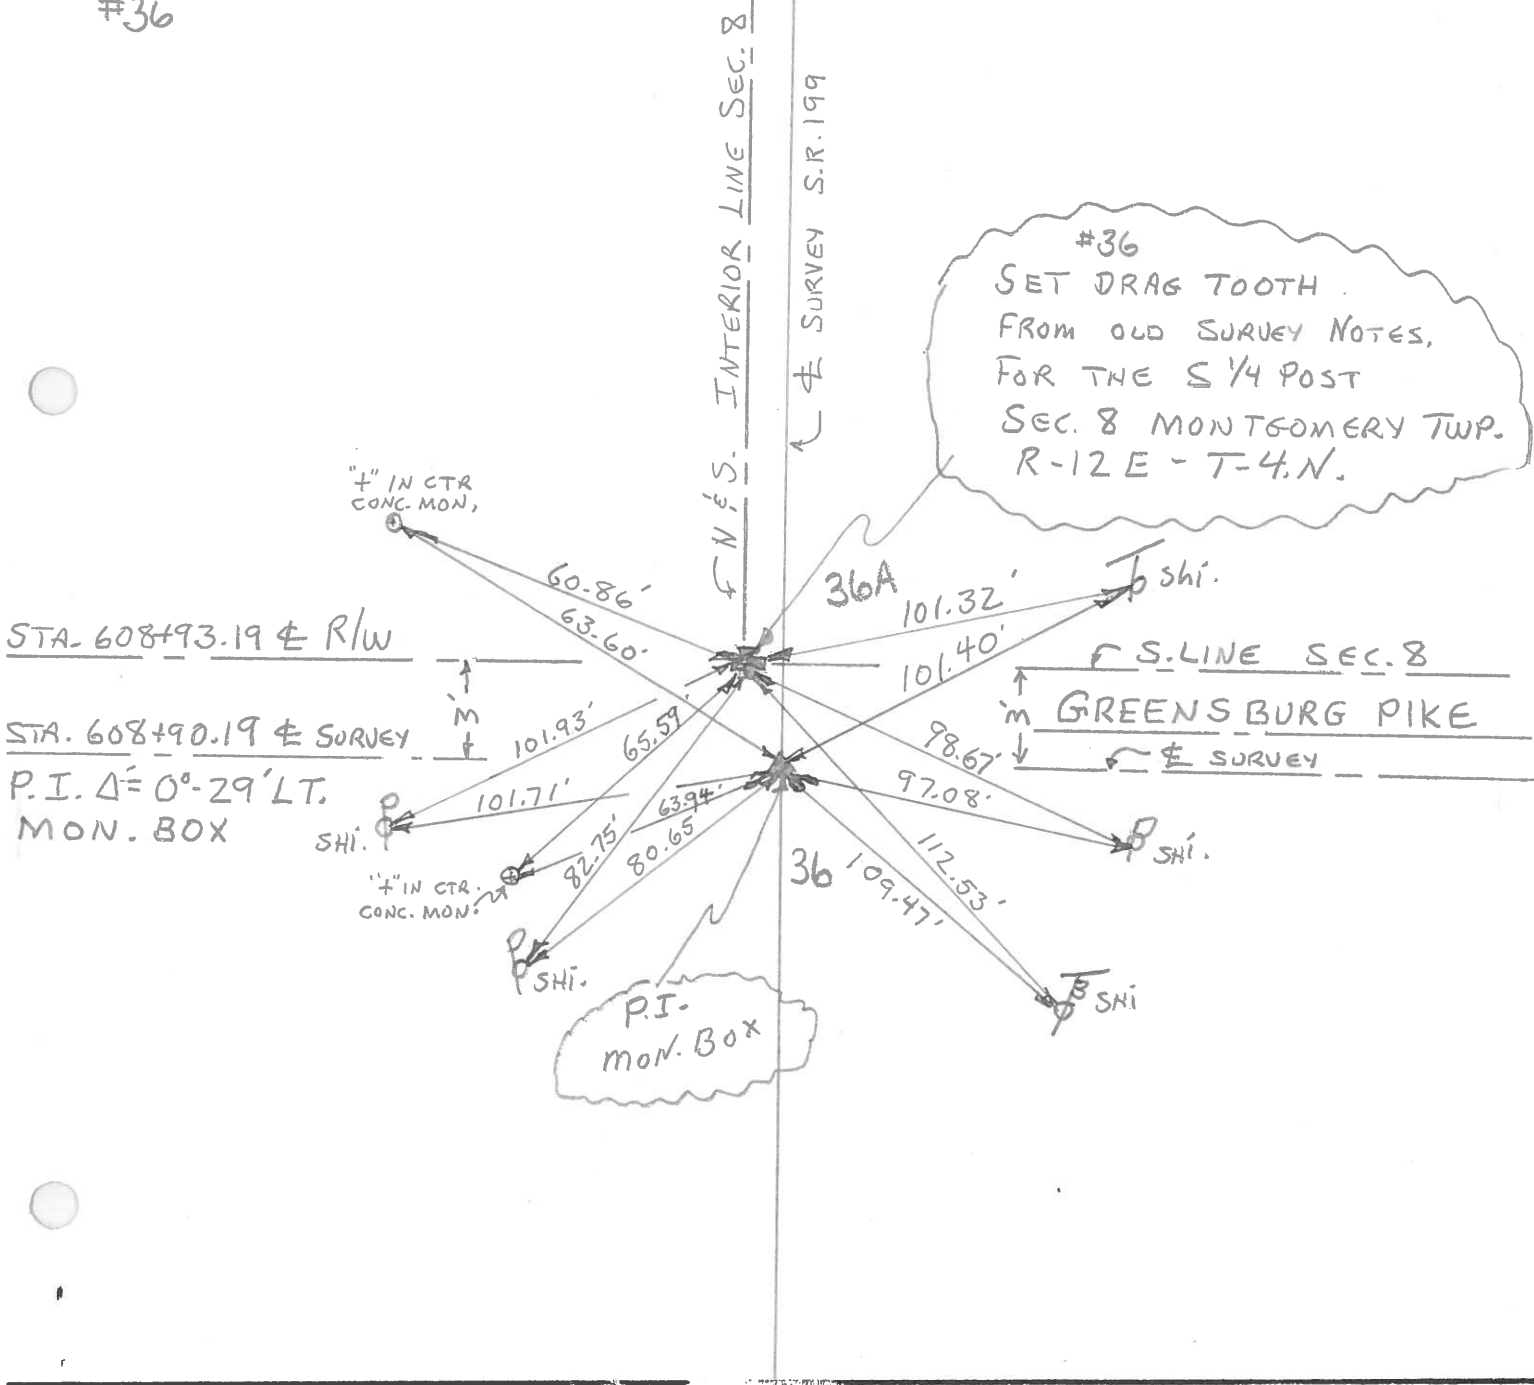 #36
N. & S. INTERIOR LINE SEC. 8
℄ SURVEY S.R. 199
#36
SET DRAG TOOTH
FROM OLD SURVEY NOTES,
FOR THE S 1/4 POST
SEC. 8 MONTGOMERY TWP.
R-12 E - T-4.N.
"+" IN CTR
CONC. MON.
60.86'
63.60'
36A
101.32'
101.40'
SHi.
STA. 608+93.19 ℄ R/W
3'
STA. 608+90.19 ℄ SURVEY
P.I. Δ= 0°-29' LT.
MON. BOX
S. LINE SEC. 8
3'
GREENSBURG PIKE
℄ SURVEY
101.93'
65.59'
98.67'
97.08'
101.71'
63.94'
82.75'
80.65'
SHi.
"+" IN CTR.
CONC. MON.
SHi.
36
112.53'
109.47'
SHi.
SHi
P.I.
MON. BOX